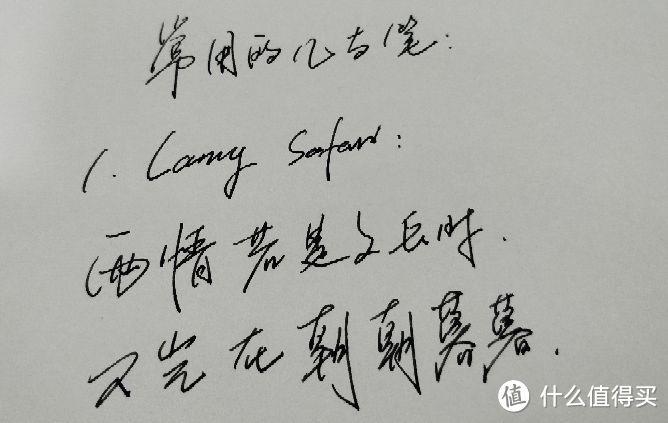 常用的几支笔:
1. Lamy Safari:
两情若是久长时.
又岂在朝朝暮暮.
值 什么值得买